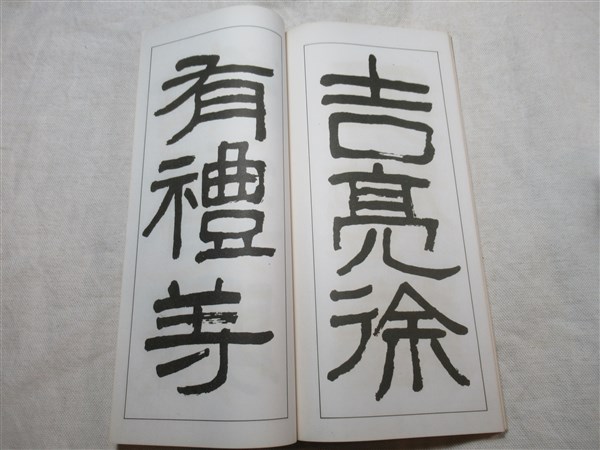 吉亮徐
有禮等